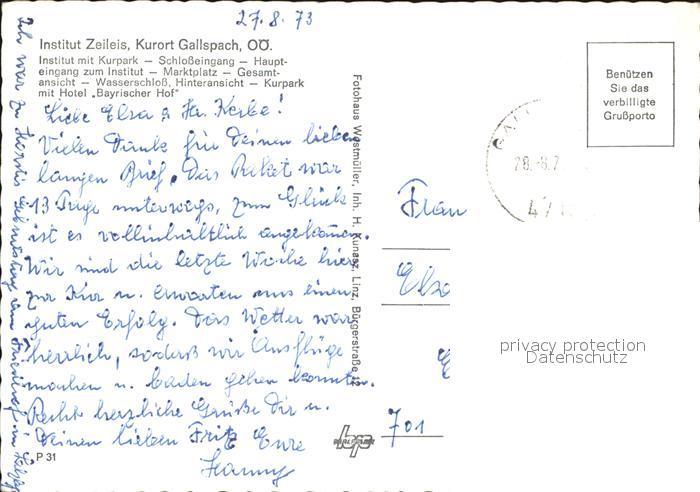 27.8.73
Institut Zeileis, Kurort Gallspach, OÖ.
Institut mit Kurpark — Schloßeingang — Haupt-
eingang zum Institut — Marktplatz — Gesamt-
ansicht — Wasserschloß, Hinteransicht — Kurpark
mit Hotel „Bayrischer Hof"
Liebe Elsa & Hr. Kerbe!
Vielen Dank für Deinen lieben
langen Brief. Das Paket war
13 Tage unterwegs, zum Glück
ist es vollinhaltlich angekommen.
Wir sind die letzte Woche hier
zur Kur u. erwarten uns einen
guten Erfolg. Das Wetter war
herrlich, sodaß wir Ausflüge
machen u. baden gehen konnten.
Recht herzliche Grüße Dir u.
Deinen lieben Fritz Eure
Hanny
P 31
Ich war zu Horstis Geburtstag am Friedhof in
Fotohaus Westmüller, Inh. H. Kunasz, Linz, Bürgerstraße 12
Benützen
Sie das
verbilligte
Grußporto
28.-8.7
47
Frau
Elsa
701
privacy protection
Datenschutz